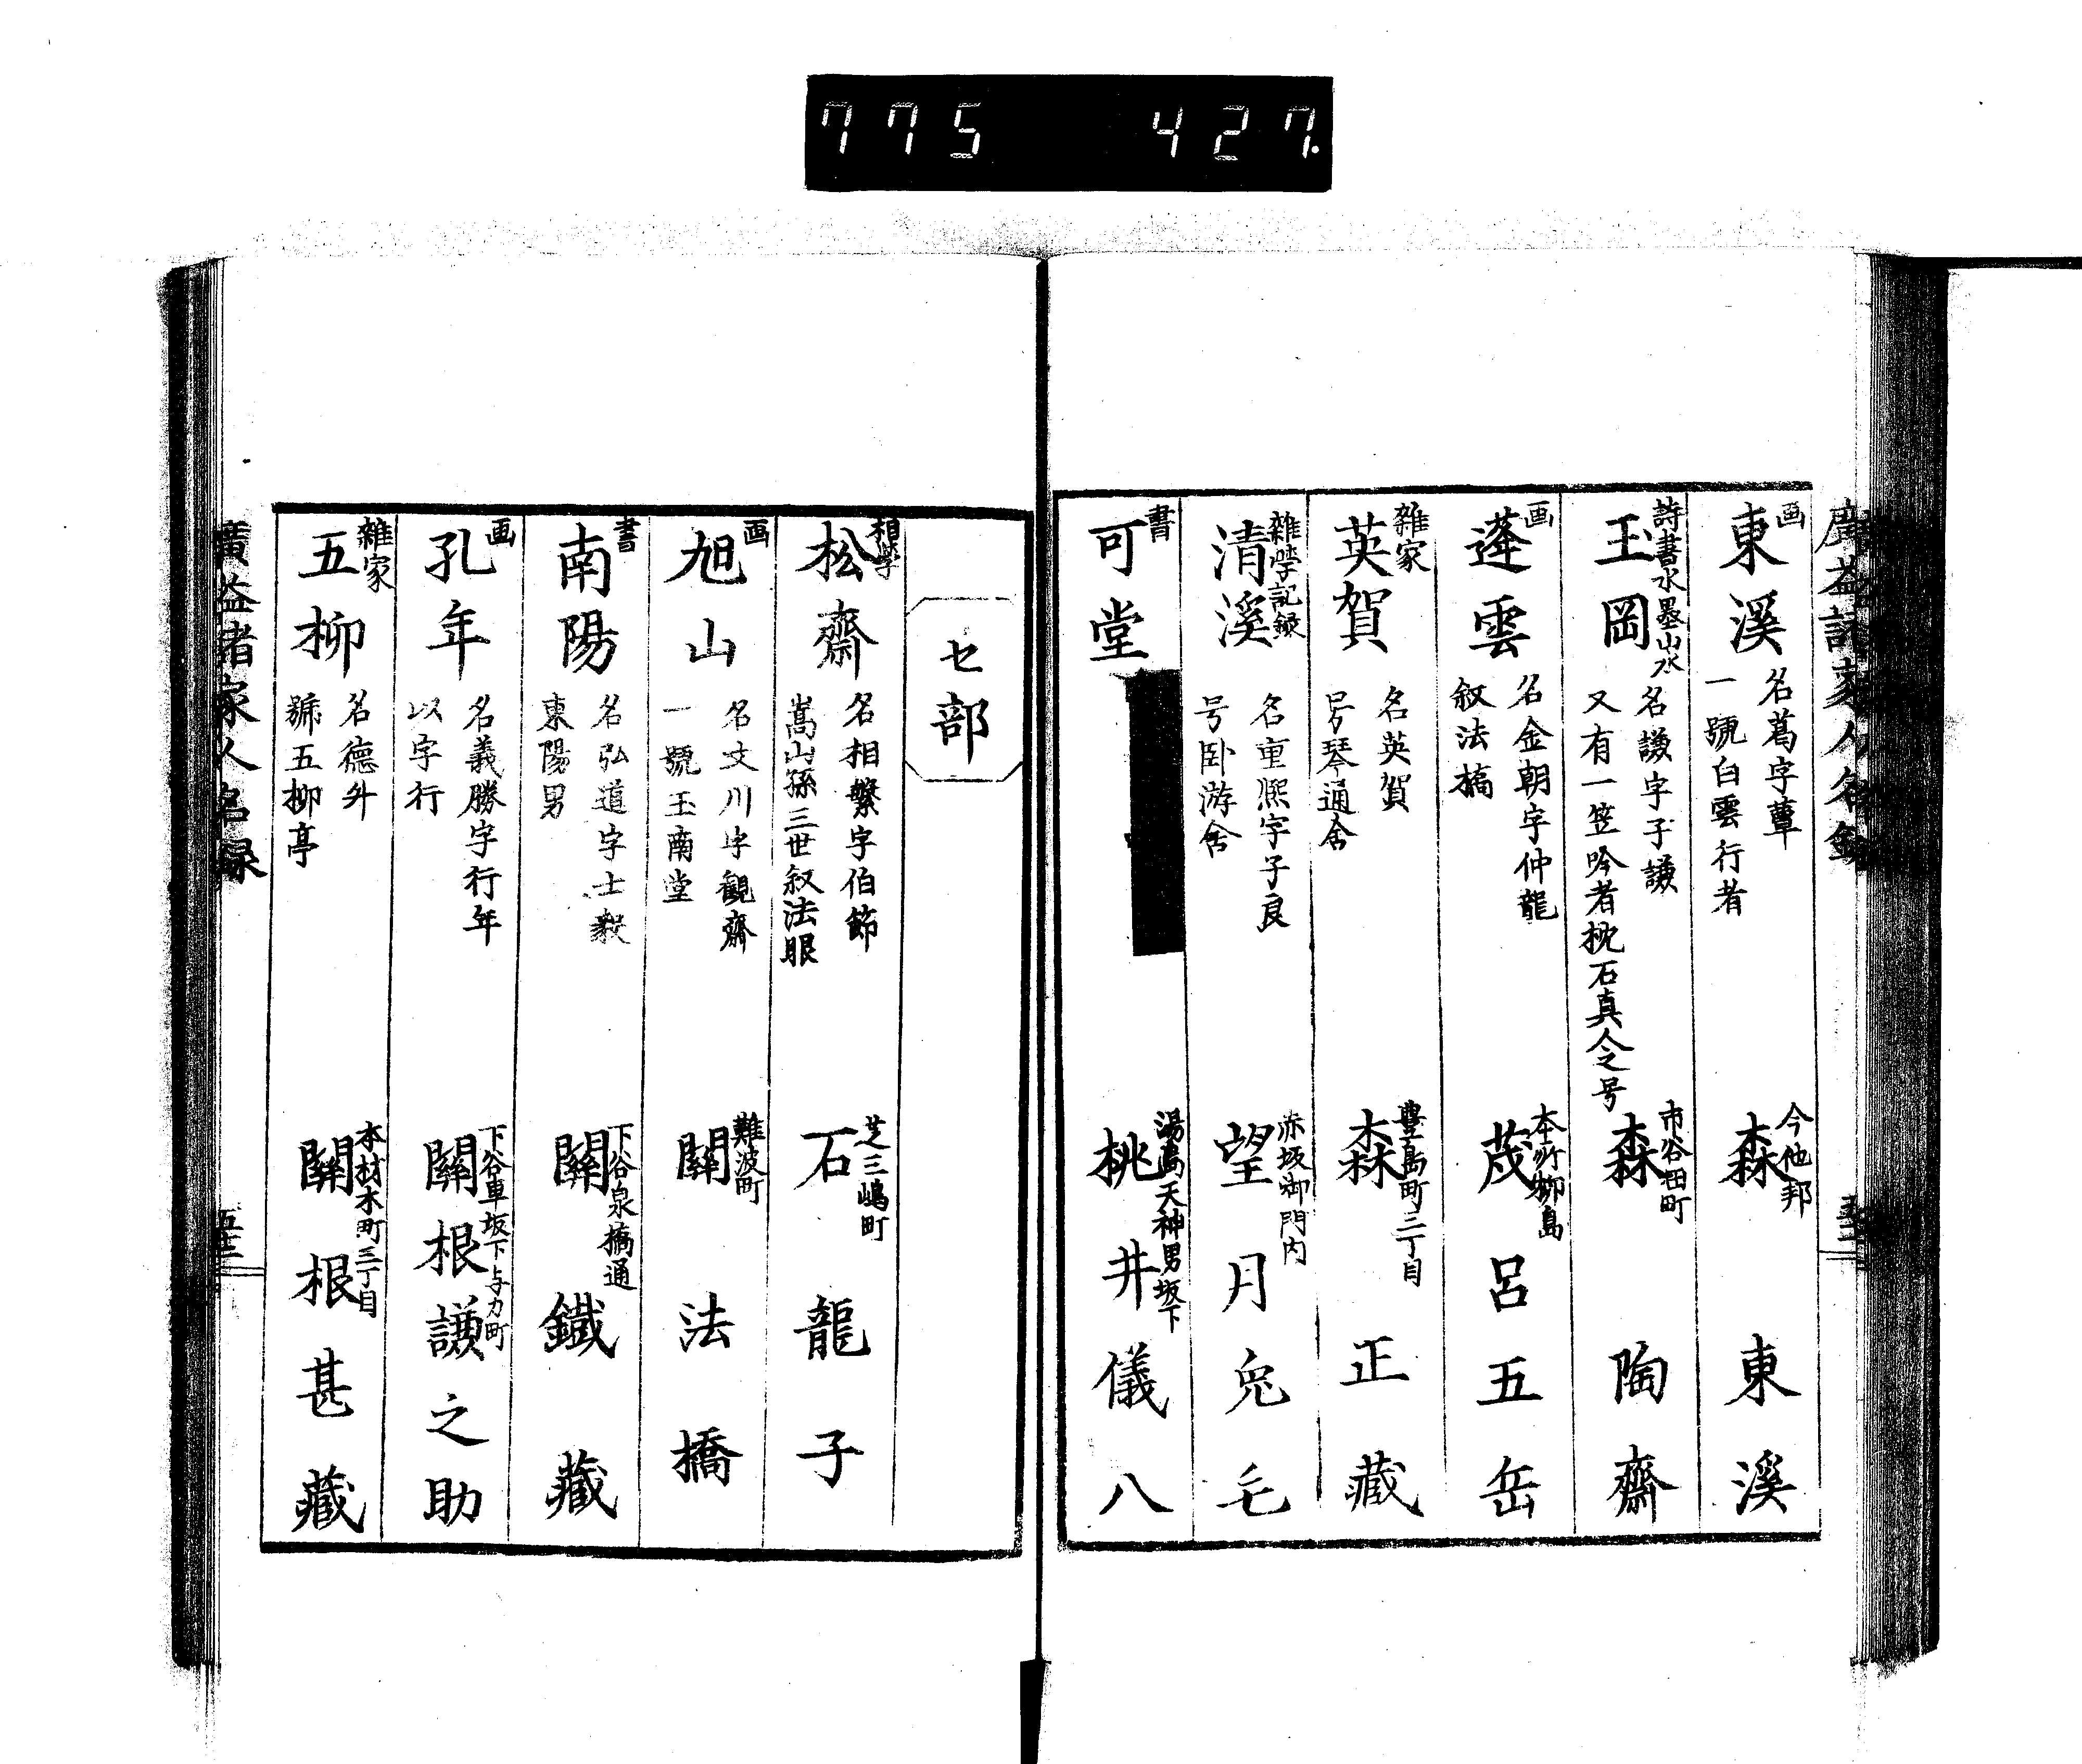 775 427.
廣益諸家人名録
画
東溪
名葛字蕈
一號白雲行者
今他邦
森東溪
詩書水墨山水
玉岡
名謙字子謙
又有一笠吟者枕石真人之号
市谷田町
森陶齋
画
蓬雲
名金朝字仲龍
叙法橋
本所柳島
茂呂五岳
雜家
英賀
名英賀
号琴通舍
豊島町三丁目
森正藏
雜學記録
清溪
名重熈字子良
号卧游舍
赤坂御門内
望月兎毛
書
可堂
湯島天神男坂下
桃井儀八
セ部
相學
松齋
名相繁字伯節
嵩山孫三世叙法眼
芝三嶋町
石龍子
画
旭山
名文川字觀齋
一號玉南堂
難波町
關法橋
書
南陽
名弘道字士毅
東陽男
下谷泉橋通
關鐵藏
画
孔年
名義勝字行年
以字行
下谷車坂下与力町
關根謙之助
雜家
五柳
名德升
號五柳亭
本材木町三丁目
關根甚藏
廣益諸家人名録
五十三